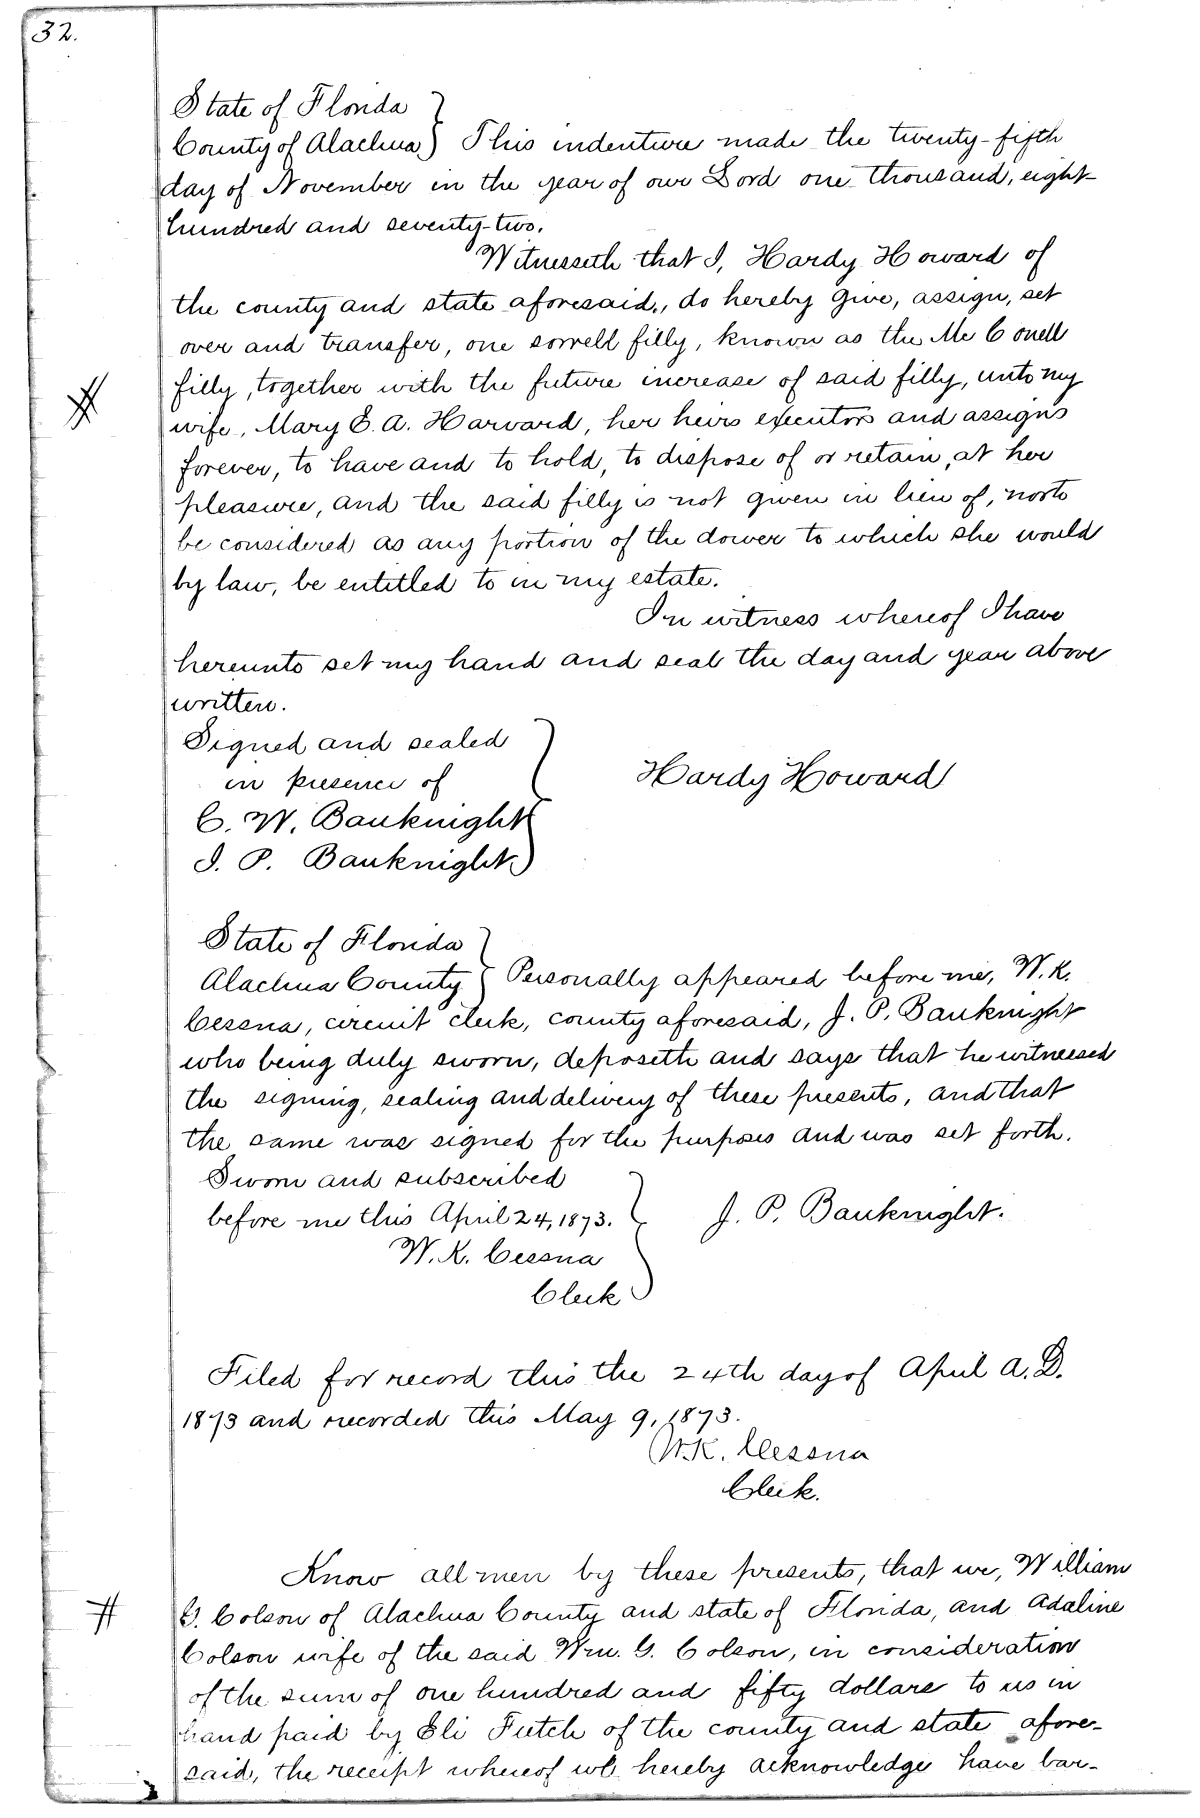 32.
State of Florida
County of Alachua } This indenture made the twenty-fifth
day of November in the year of our Lord one thousand, eight-
hundred and seventy-two.
Witnesseth that I, Hardy Howard of
the county and state aforesaid, do hereby give, assign, set
over and transfer, one sorrell filly, known as the McConell
filly, together with the future increase of said filly, unto my
wife, Mary E. A. Harvard, her heirs executors and assigns
forever, to have and to hold, to dispose of or retain, at her
pleasure, and the said filly is not given in lieu of, nor to
be considered as any portion of the dower to which she would
by law, be entitled to in my estate.
In witness whereof I have
hereunto set my hand and seal the day and year above
written.
Signed and sealed
in presence of
Hardy Howard
C. W. Bauknight
J. P. Bauknight
State of Florida
Alachua County } Personally appeared before me, W. K.
Cessna, circuit clerk, county aforesaid, J. P. Bauknight
who being duly sworn, deposeth and says that he witnessed
the signing, sealing and delivery of these presents, and that
the same was signed for the purposes and was set forth.
Sworn and subscribed
before me this April 24, 1873. } J. P. Bauknight.
W. K. Cessna
Clerk
Filed for record this the 24th day of April A.D.
1873 and recorded this May 9, 1873.
W. K. Cessna
Clerk.
Know all men by these presents, that we, William
# G. Colson of Alachua County and state of Florida, and Adaline
Colson wife of the said Wm. G. Colson, in consideration
of the sum of one hundred and fifty dollars to us in
hand paid by Eli Futch of the county and state afore-
said, the receipt whereof we hereby acknowledge have bar-